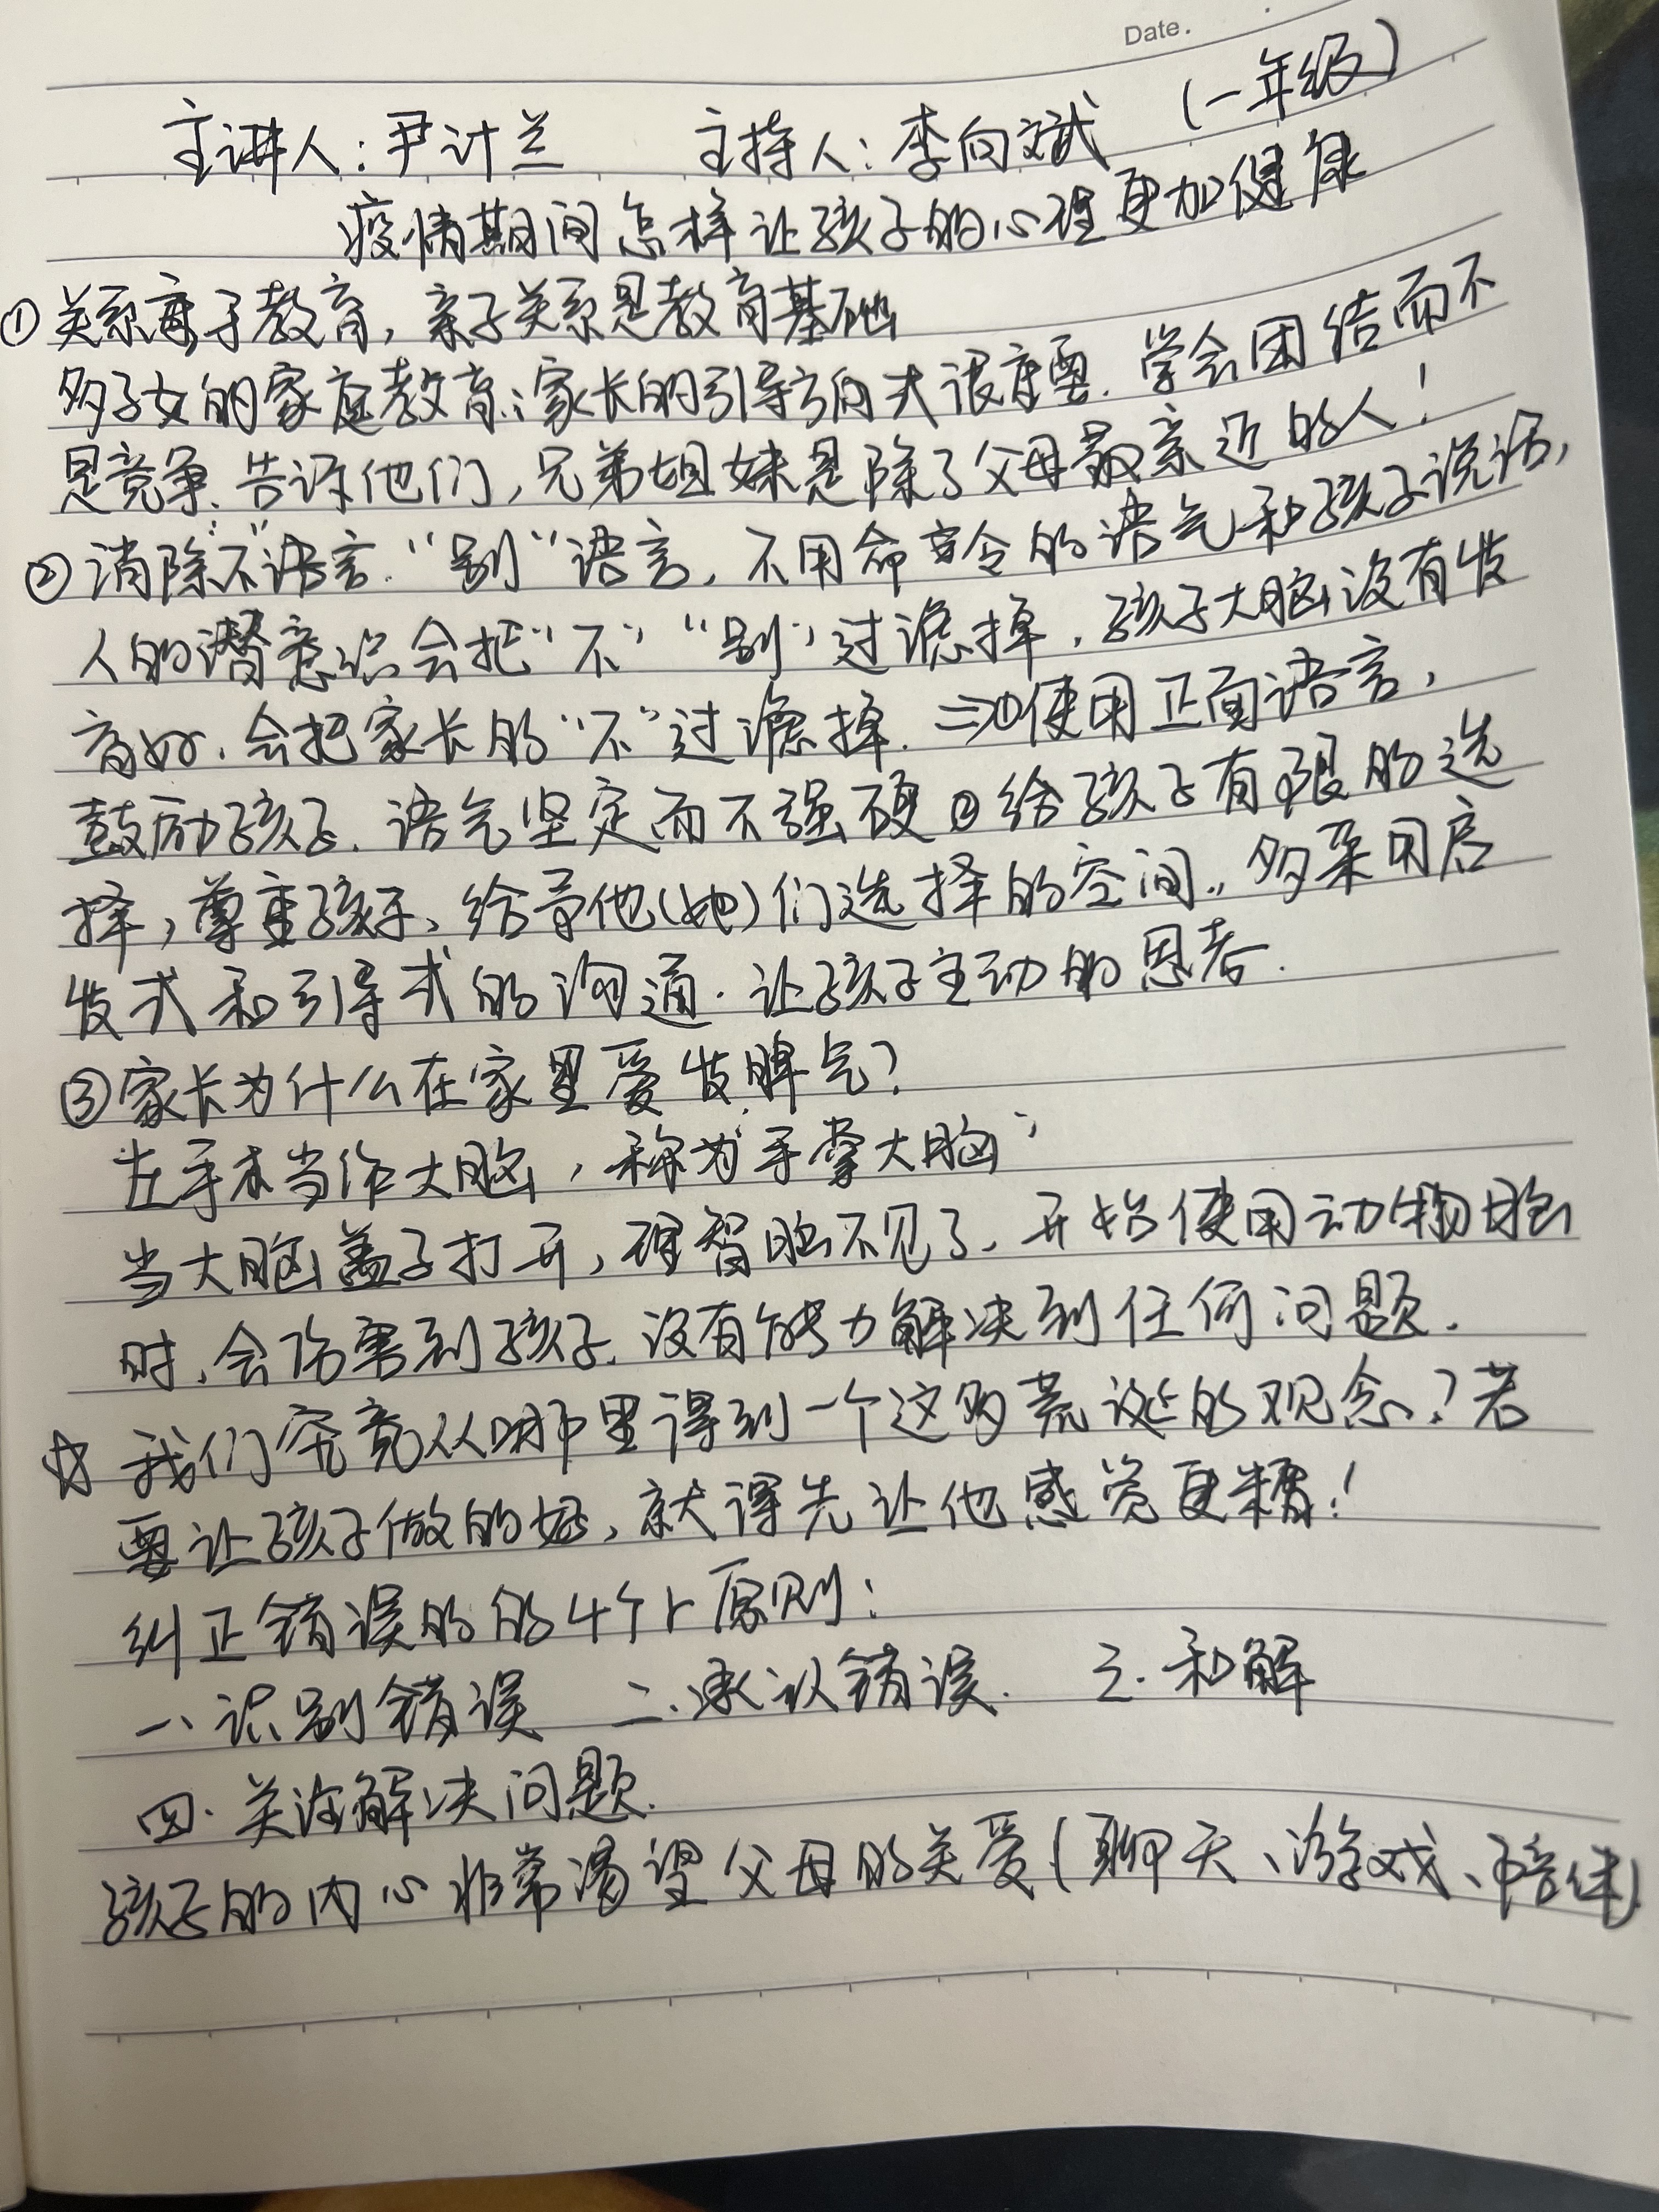 Date.
主讲人：尹计兰 主持人：李向斌 （一年级）
疫情期间怎样让孩子的心理更加健康
①关系重于教育，亲子关系是教育基础
多子女的家庭教育：家长的引导方向式很重要．学会团结而不
是竞争．告诉他们，兄弟姐妹是除了父母最亲近的人！
②消除“不”语言．“别”语言，不用命令的语气和孩子说话，
人的潜意识会把“不”“别”过滤掉．孩子大脑没有发
育好．会把家长的“不”过滤掉．⇒①使用正面语言，
鼓励孩子．语气坚定而不强硬②给孩子有限的选
择，尊重孩子、给予他（她）们选择的空间．．多采用启
发式和引导式的沟通．让孩子主动的思考．
③家长为什么在家里爱发脾气？
左手本当作大脑，称为“手掌大脑”
当大脑盖子打开，理智脑不见了．开始使用动物脑
时．会伤害到孩子．没有能力解决到任何问题．
☆我们究竟从哪里得到一个这多荒诞的观念？若
要让孩子做的好，就得先让他感觉更糟！
纠正错误的的4个原则：
一、识别错误 二．承认错误． 三．和解
四．关注解决问题．
孩子的内心非常渴望父母的关爱（聊天、游戏、陪伴）